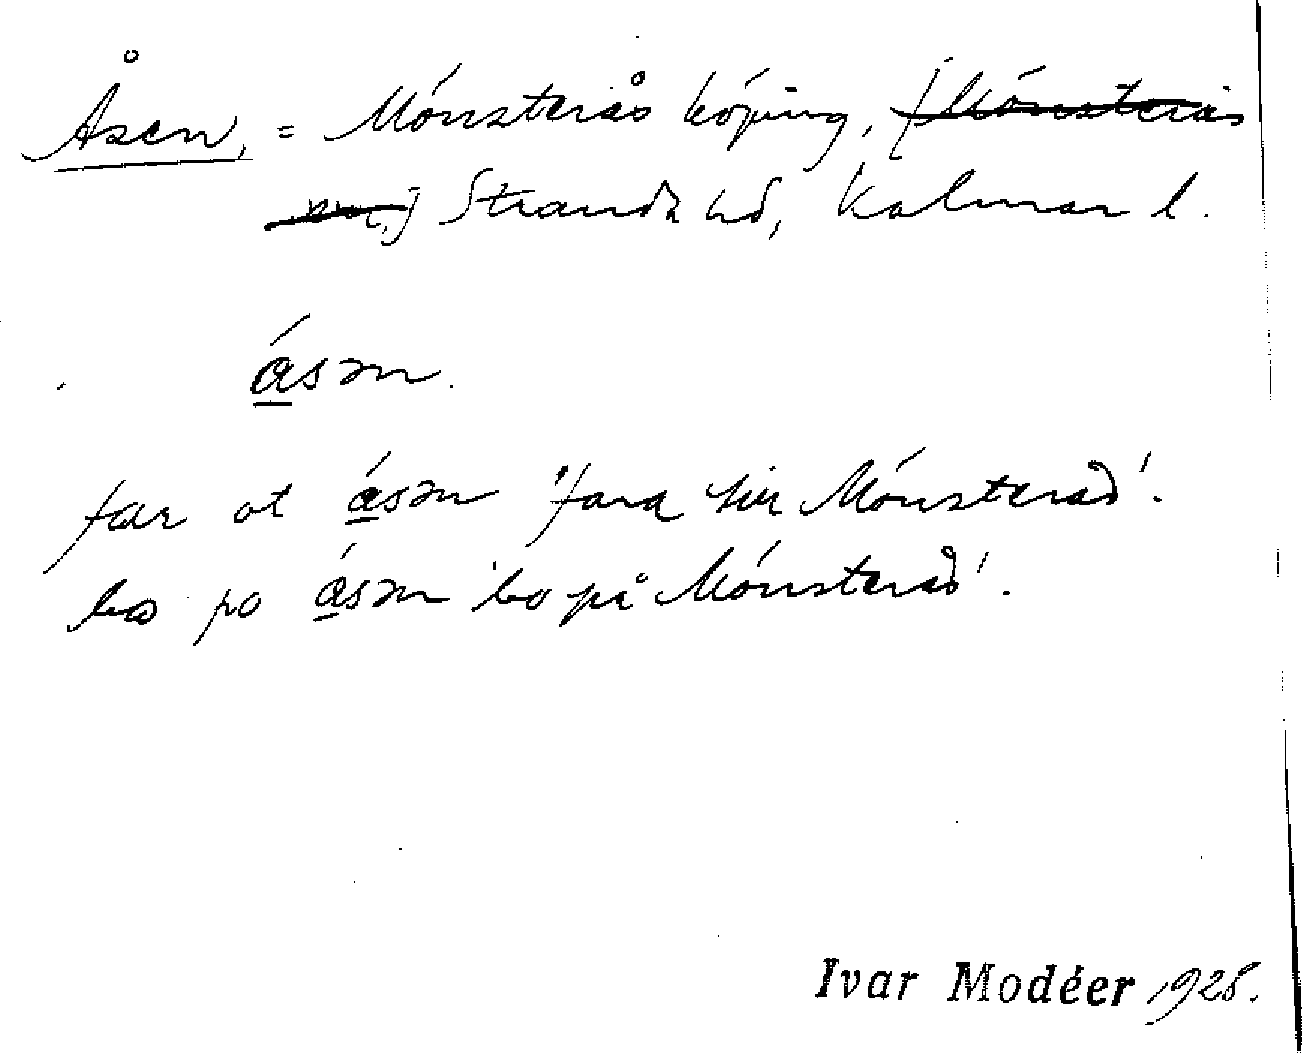 Åsen, = Mönsterås köping, [Mönsterås
sn,] Stranda hd, Kalmar l.
ásən.
far ot ásən 'fara till Mönsterås'.
bo po ásən 'bo på Mönsterås'.
Ivar Modéer 1925.